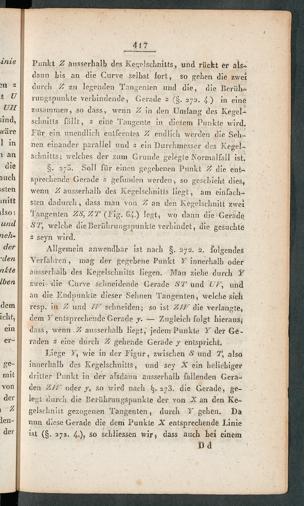 417
Punkt Z ausserhalb des Kegelschnitts, und rückt er als-
dann bis an die Curve selbst fort, so gehen die zwei
durch Z zu legenden Tangenten und die, die Berüh-
rungspunkte verbindende, Gerade z (§. 272. 4.) in eine
zusammen, so dass, wenn Z in den Umfang des Kegel-
schnitts fällt, z eine Tangente in diesem Punkte wird.
Für ein unendlich entferntes Z endlich werden die Seh-
nen einander parallel und z ein Durchmesser des Kegel-
schnitts; welches der zum Grunde gelegte Normalfall ist.
§. 275. Soll für einen gegebenen Punkt Z die ent-
sprechende Gerade z gefunden werden, so geschieht dies,
wenn Z ausserhalb des Kegelschnitts liegt, am einfach-
sten dadurch, dass man von Z an den Kegelschnitt zwei
Tangenten ZS, ZT (Fig. 64.) legt, wo dann die Gerade
ST, welche die Berührungspunkte verbindet, die gesuchte
z seyn wird.
Allgemein anwendbar ist nach §. 272. 2. folgendes
Verfahren, mag der gegebene Punkt Y innerhalb oder
ausserhalb des Kegelschnitts liegen. Man ziehe durch Y
zwei die Curve schneidende Gerade ST und UV, und
an die Endpunkte dieser Sehnen Tangenten, welche sich
resp. in Z und W schneiden; so ist ZW die verlangte,
dem Y entsprechende Gerade y. — Zugleich folgt hieraus,
dass, wenn Z ausserhalb liegt, jedem Punkte Y der Ge-
raden z eine durch Z gehende Gerade y entspricht.
Liege Y, wie in der Figur, zwischen S und T, also
innerhalb des Kegelschnitts, und sey X ein beliebiger
dritter Punkt in der alsdann ausserhalb fallenden Gera-
den ZW oder y, so wird nach §. 273. die Gerade, ge-
legt durch die Berührungspunkte der von X an den Ke-
gelschnitt gezogenen Tangenten, durch Y gehen. Da
nun diese Gerade die dem Punkte X entsprechende Linie
ist (§. 272. 4.), so schliessen wir, dass auch bei einem
D d